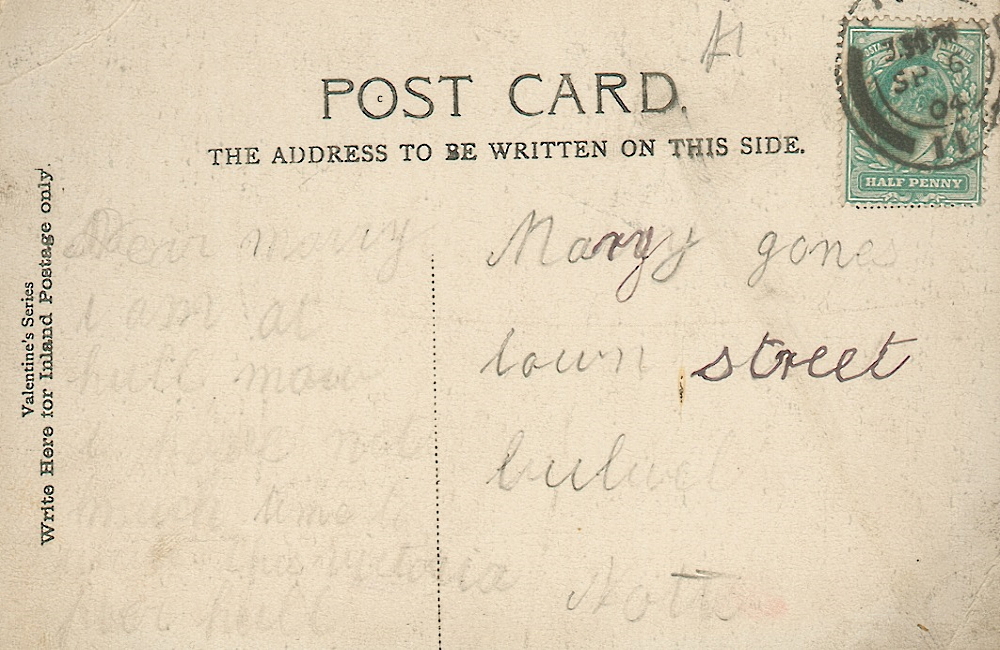 POST CARD.
THE ADDRESS TO BE WRITTEN ON THIS SIDE.
Valentine's Series
Write Here for Inland Postage only.
SP 6
04
11
HALF PENNY
Dear marry
I am at
hull
I have not
time
the victoria
hull
Maryy gones
town street
bulwel
Notts